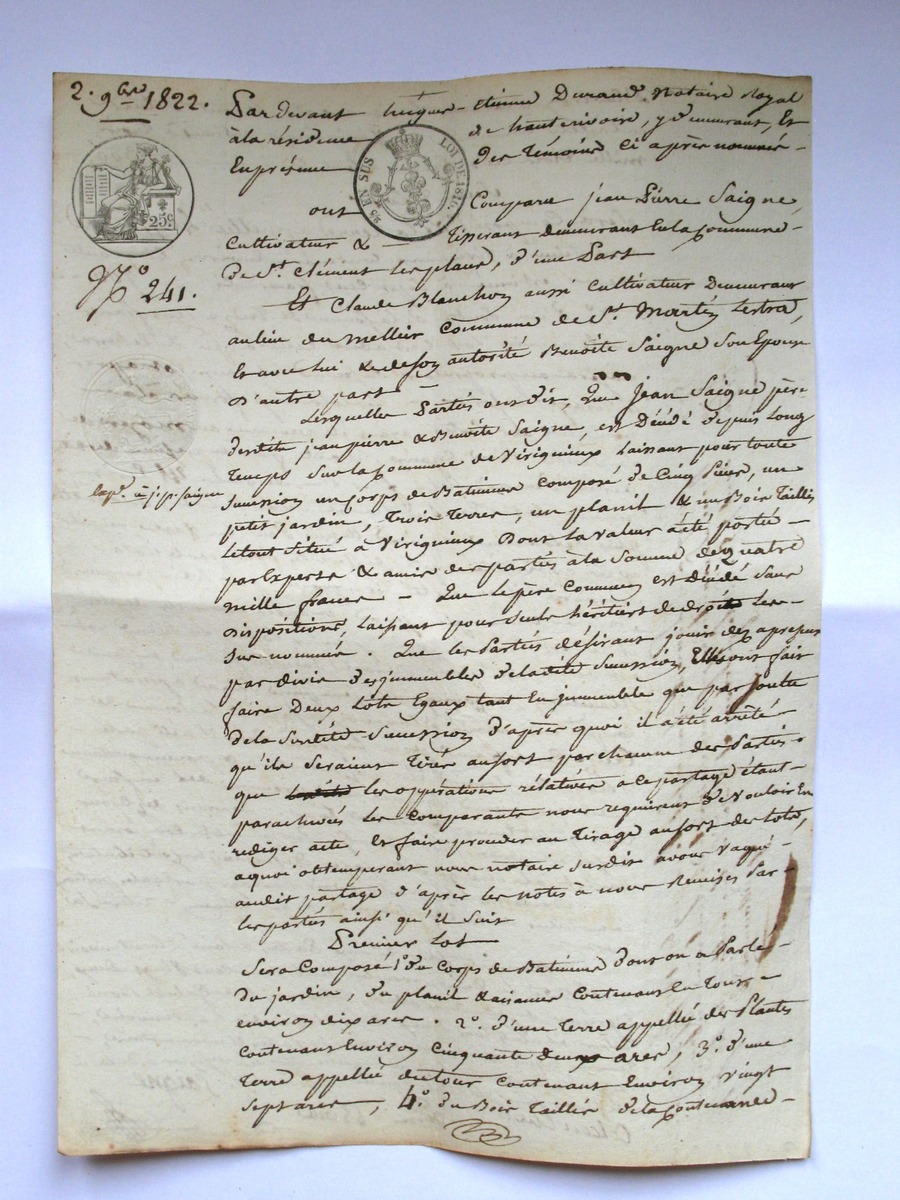 2. 9bre 1822.
Pardevant hugue-etienne Durand Notaire Royal
à la résidence de hauterivoire, y demeurant, Et
En présence des témoins ci après nommés-
EN SUS LOI DE 1816.
25c
ont Comparu jean Pierre Saigne,
Cultivateur & Tisserant demeurant En la Commune-
De St. Clément les places, d'une Part
No 241.
Et Claude Blanchon aussi cultivateur Demeurant
au lieu du mellier Commune de St. Martin Lestra,
Et avec lui & de son autorité Benoite Saigne Son Epouse
D'autre part -
Lesquelles Parties ont dit, Que Jean Saigne père
desdits jean pierre & Benoite Saigne, est Décédé depuis Long
Temps Sur la Commune de Virigneux Laissant pour toute
exp. à j. p. saigne
Succession un Corps de Batimens Composé de Cinq pièces, un
petit jardin, Trois Terres, un planil & un Bois Taillis
Le tout Situé à Virigneux Dont la valeur a été portée -
par Experts & amis des parties à la Somme de quatre
mille francs - Que le père Commun est décédé Sans
Dispositions, laissant pour Seuls héritiers de droits les -
Sus nommés. Que les Parties désirant jouir à présent
par divis des immeubles de ladite Succession, Elles ont fait
faire Deux Lots Egaux tant En immeuble que par Soulte
De la Susdite Succession D'après quoi il a été arrêté
qu'ils Seraient Tirés au Sort par chacune des Parties.
que les oppérations rélatives a ce partage étant
parachevés Les Comparants nous requierent de Vouloir En
rediger acte, Et faire proceder au Tirage au Sort des Lots,
a quoi obtemperant nous notaire Susdit avons vaqué -
audit partage d'après les notes à nous Remises Par -
les parties ainsi qu'il Suit
Premier Lot
Sera Composé 1o Du Corps de Batimens Dont on a Parlé -
Du jardin, du planil & aisances Contenant En Tout -
environ dix ares. 2o. d'une Terre appellée des Plantes
Contenant Environ Cinquante deux ares, 3o. d'une
Terre appellée du tour Contenant Environ vingt
Sept ares, 4o. du Bois Taillis de la Contenance -